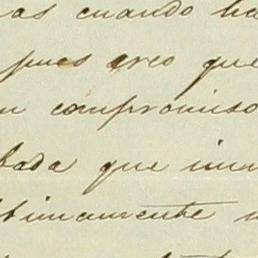 as cuando ha
pues creo que
n compromiso
bada que inm
timamente